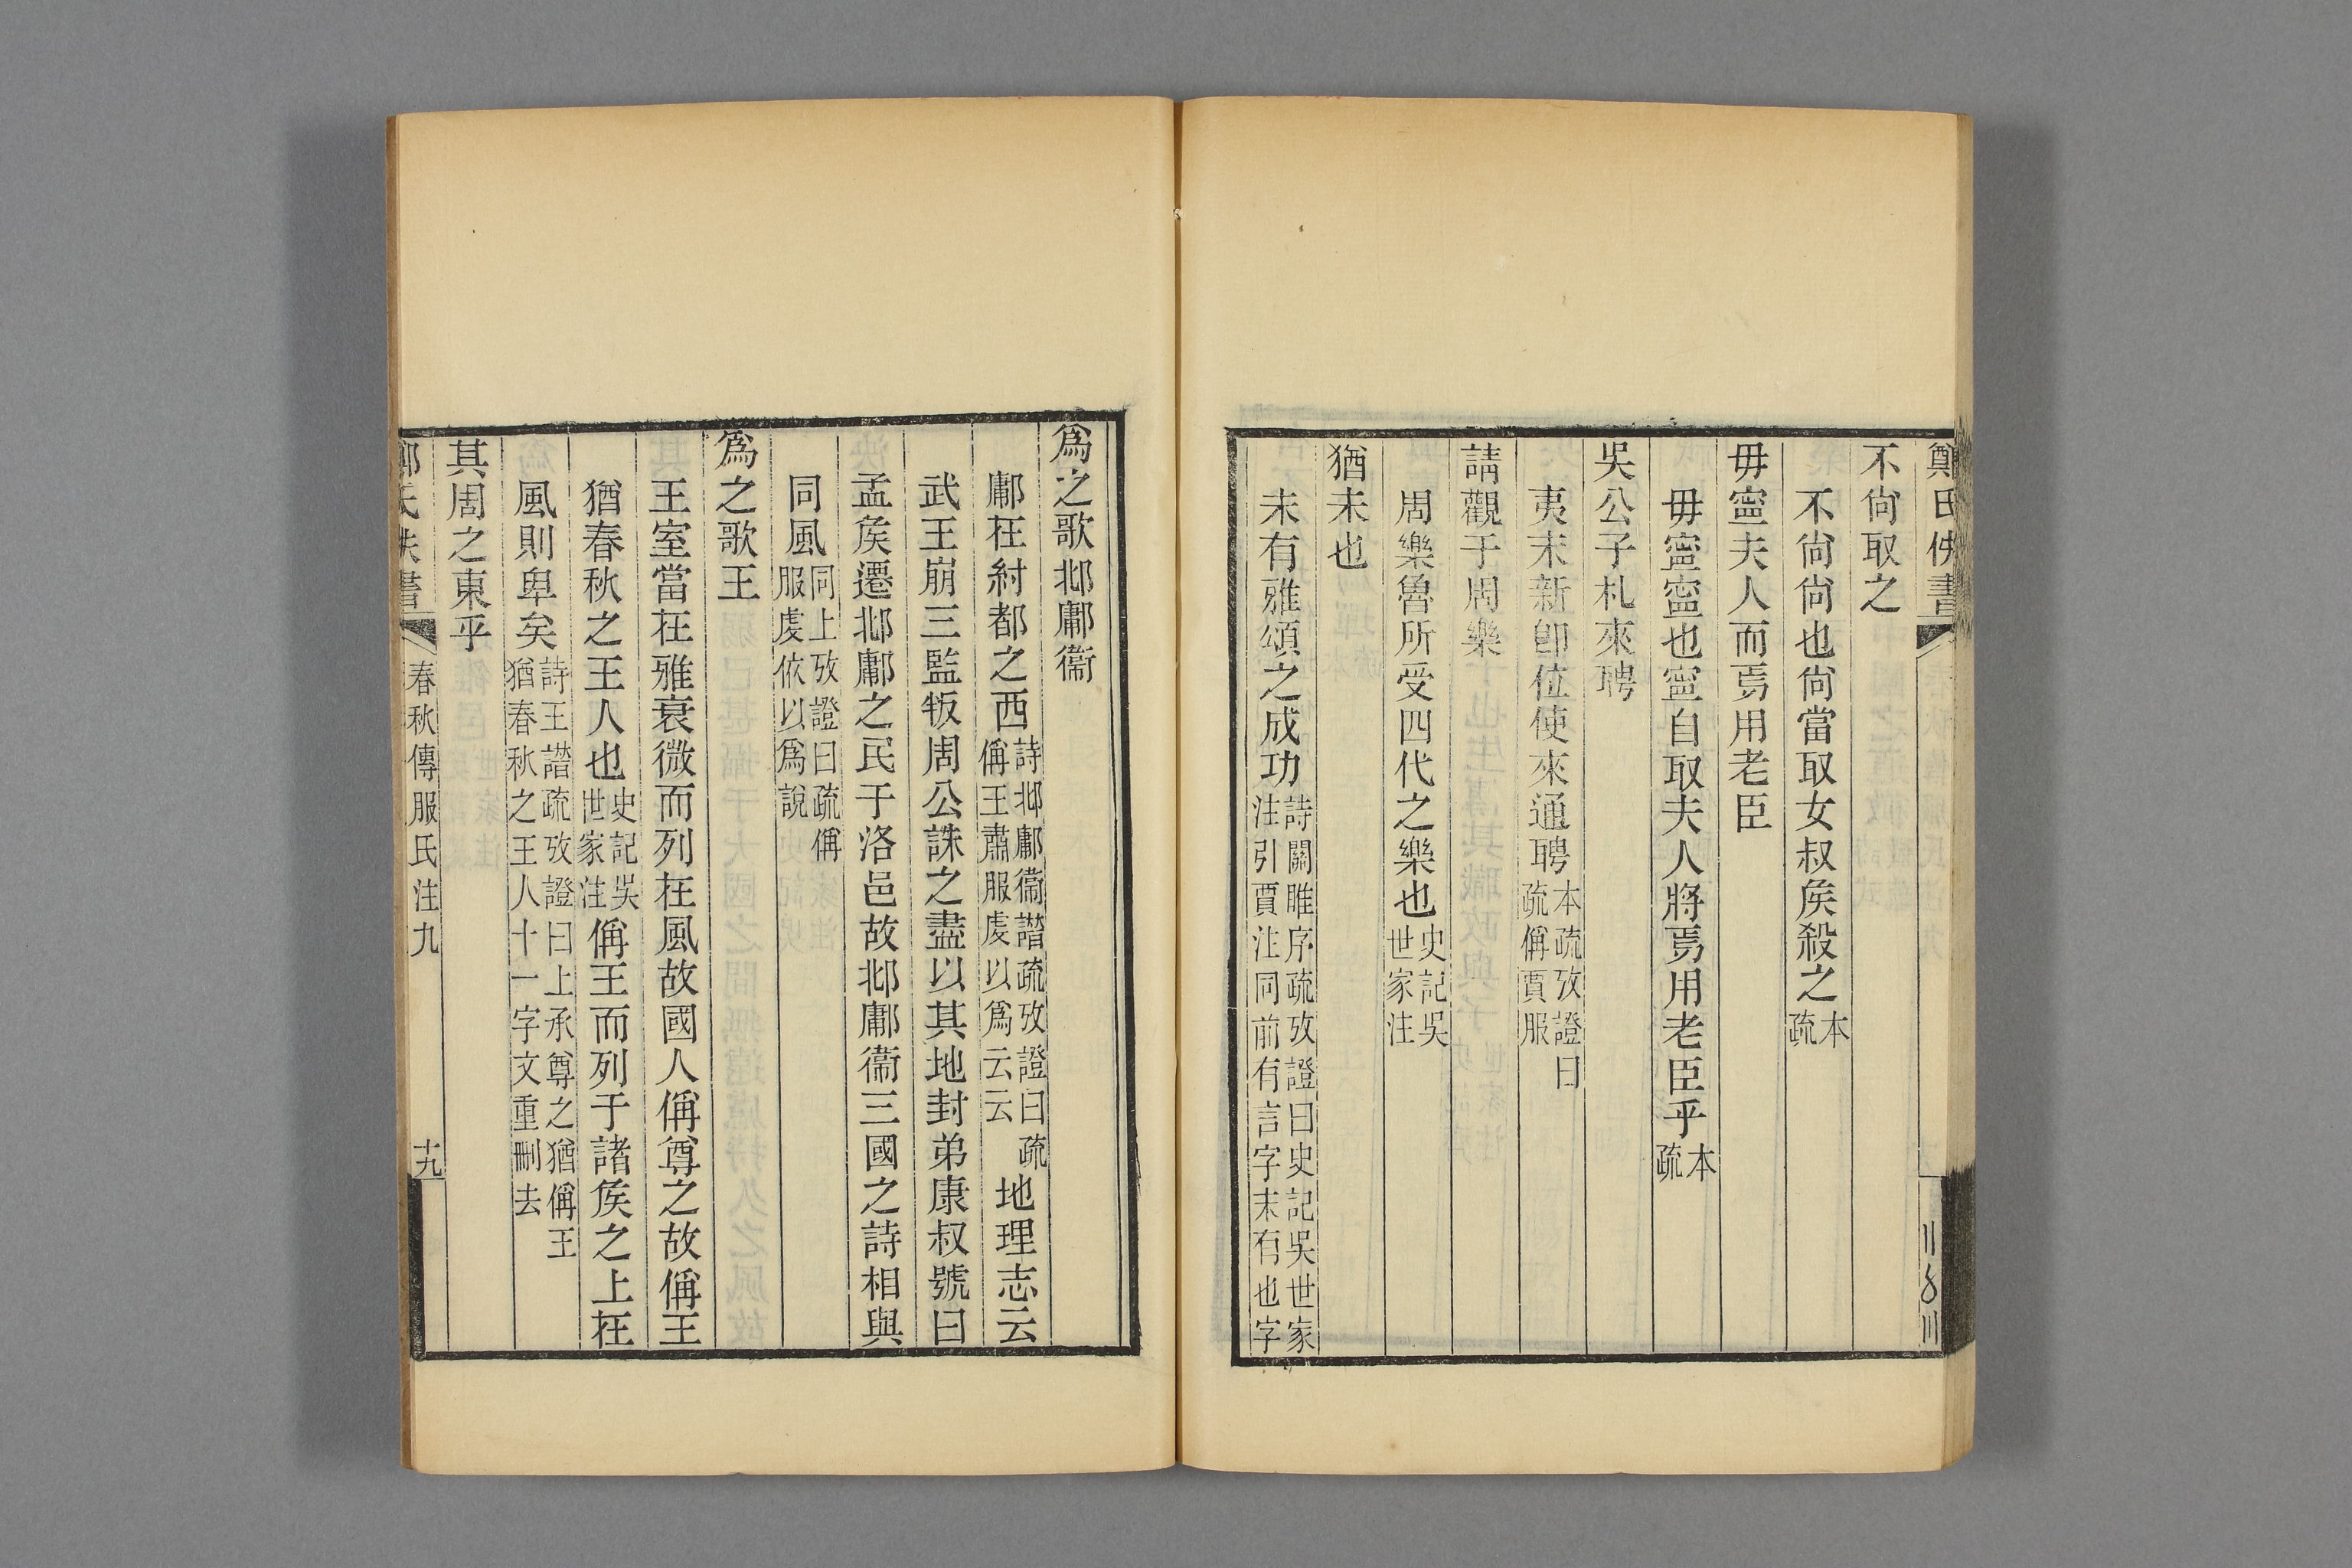 鄭氏佚書
不尙取之
不尙尙也尙當取女叔矦殺之本疏
毋寍夫人而焉用老臣
毋寍寍也寍自取夫人將焉用老臣乎本疏
吳公子札來聘
夷末新卽位使來通聘本疏攷證曰疏偁賈服
請觀于周樂
周樂魯所受四代之樂也史記吳世家注
猶未也
未有雅頌之成功詩關雎序疏攷證曰史記吳世家注引賈注同前有言字末有也字
爲之歌邶鄘衞
鄘在紂都之西詩邶鄘衞譜疏攷證曰疏偁王肅服虔以爲云云地理志云
武王崩三監叛周公誅之盡以其地封弟康叔號曰
孟矦遷邶鄘之民于洛邑故邶鄘衞三國之詩相與
同風同上攷證曰疏偁服虔依以爲說
爲之歌王
王室當在雅衰微而列在風故國人偁尊之故偁王
猶春秋之王人也史記吳世家注偁王而列于諸矦之上在
風則卑矣詩王譜疏攷證曰上承尊之猶偁王猶春秋之王人十一字文重刪去
其周之東乎
春秋傳服氏注九
十九